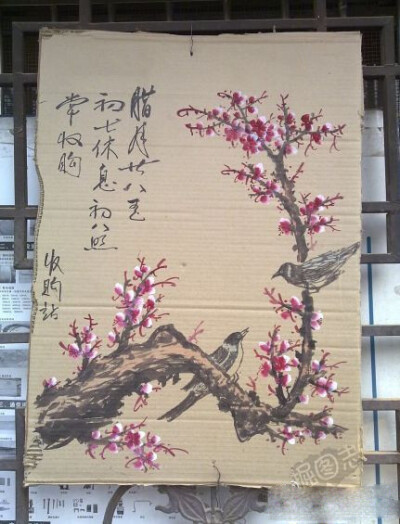 腊月廿八至
初七休息初八照
常收购
收购站
掘图志